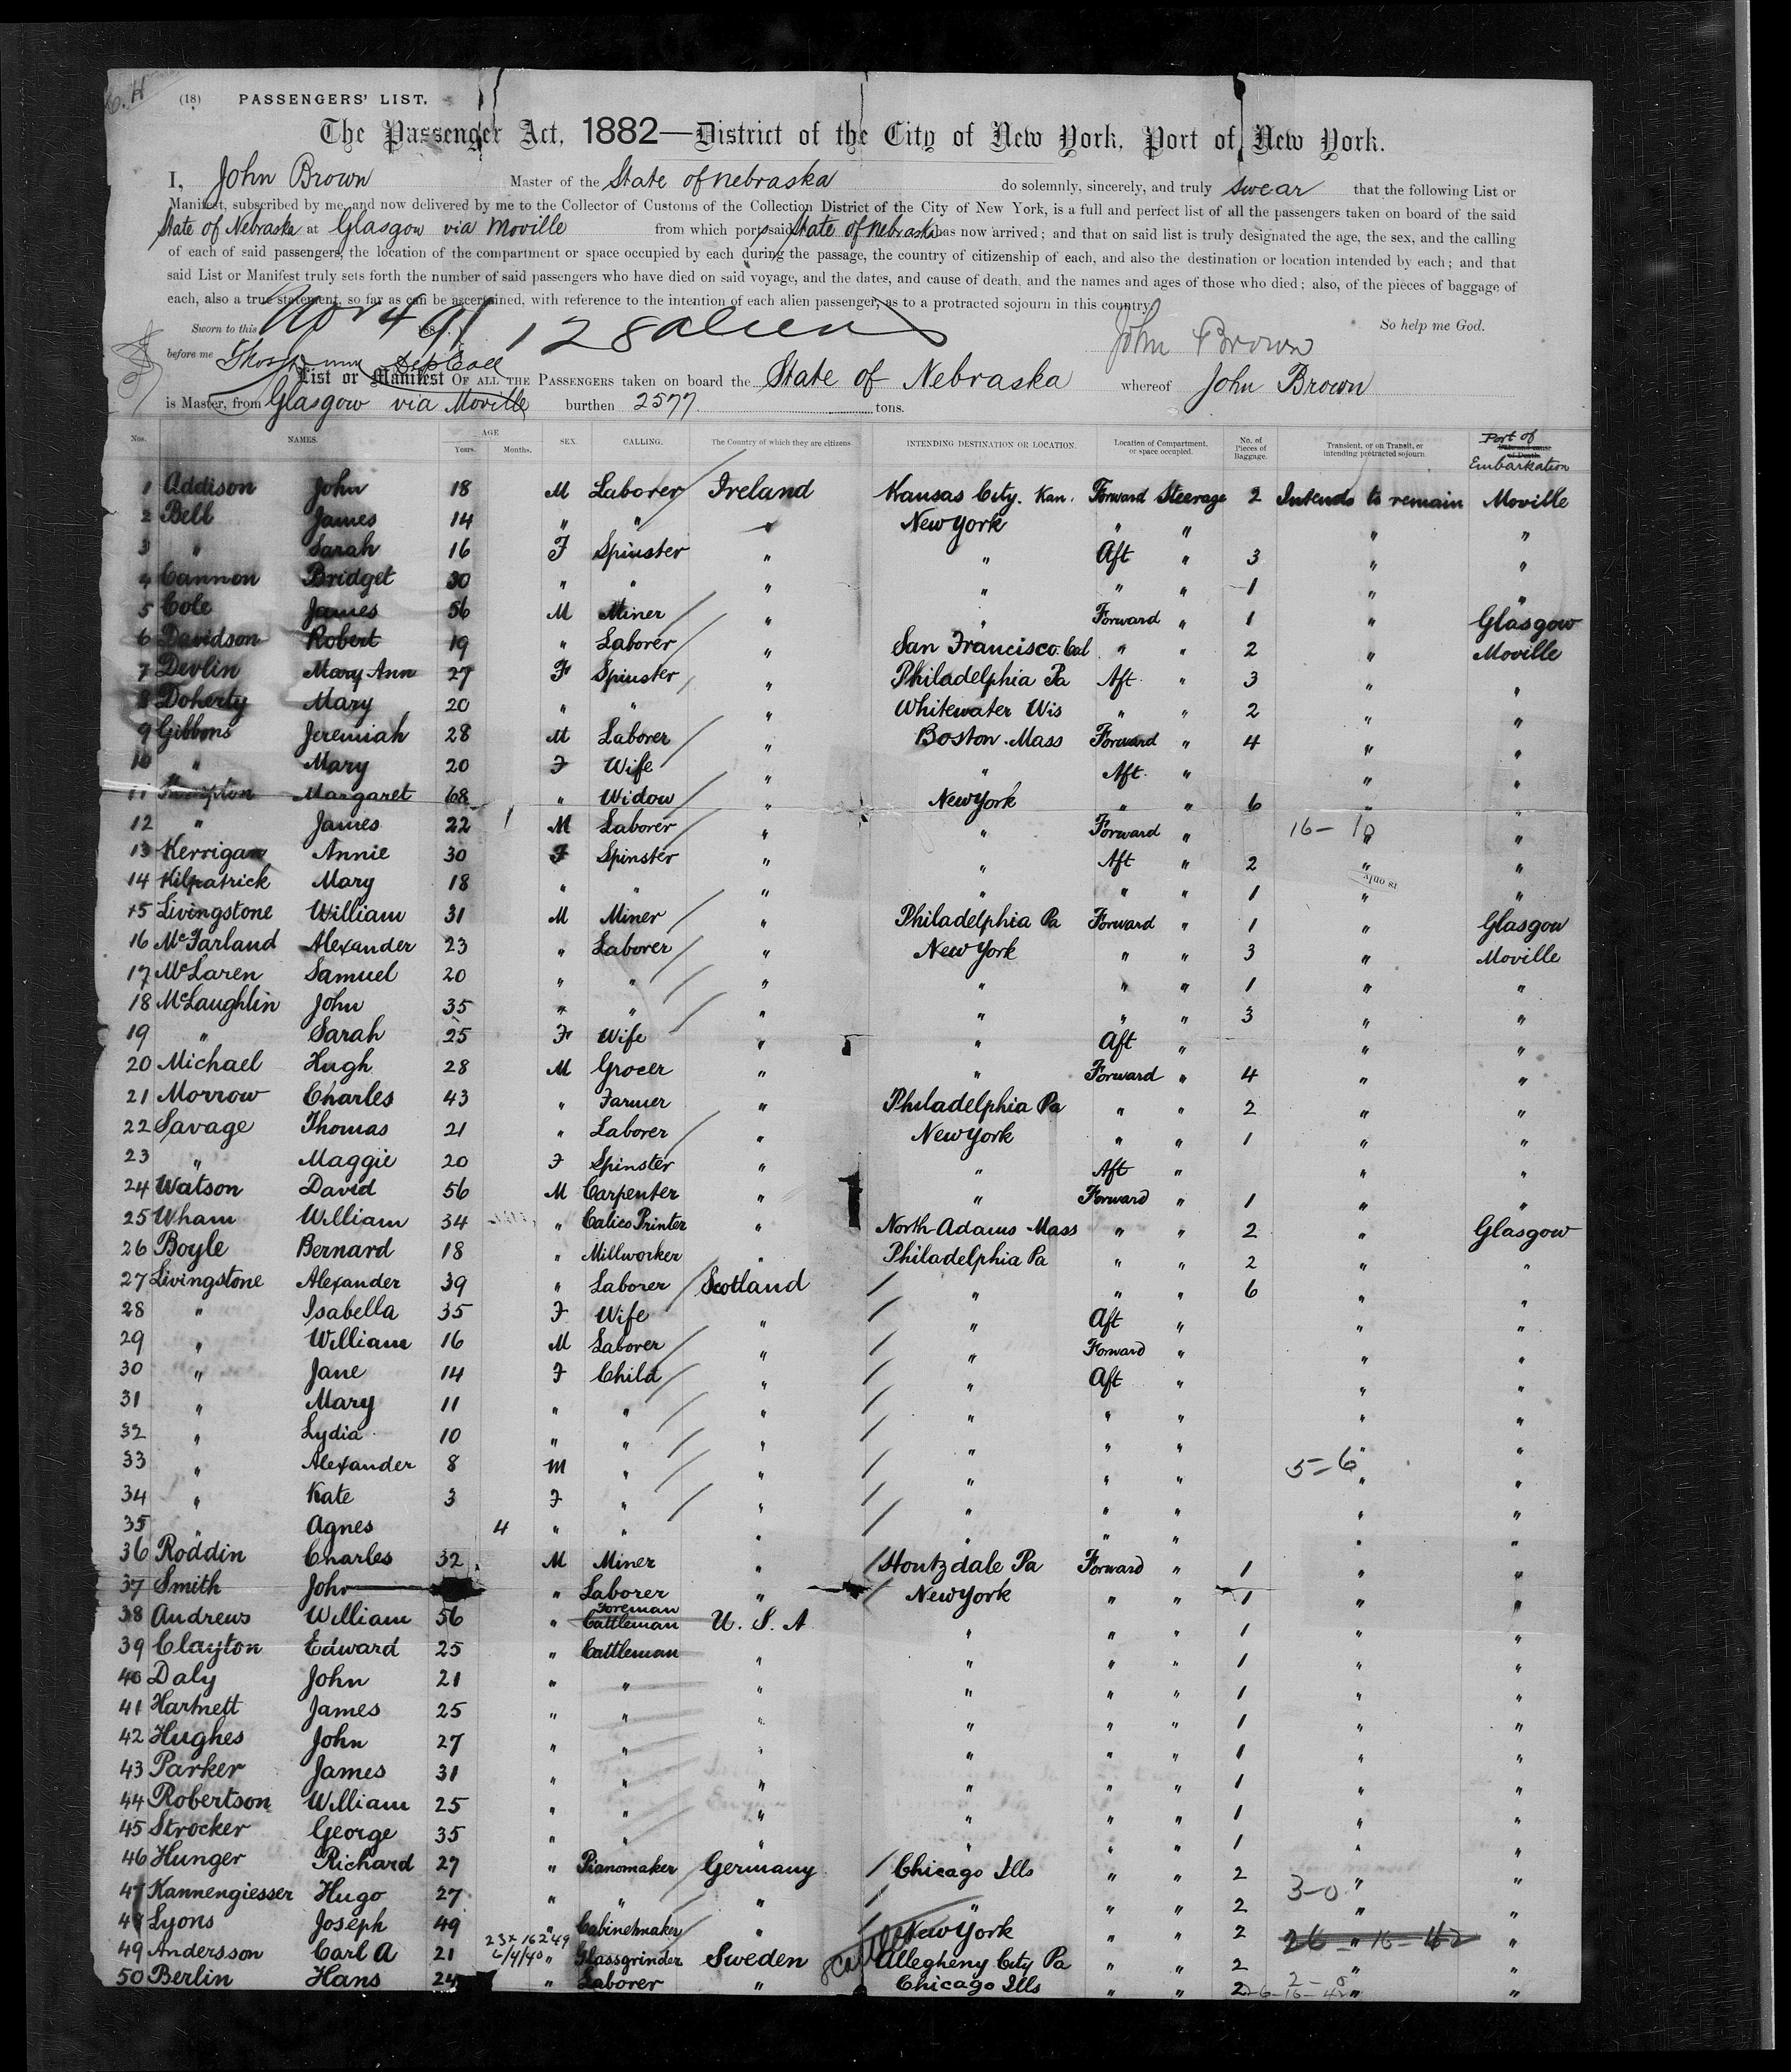 (18) PASSENGERS' LIST.
The Passenger Act, 1882—District of the City of New York, Port of New York.
I, John Brown Master of the State of Nebraska do solemnly, sincerely, and truly swear that the following List or
Manifest, subscribed by me, and now delivered by me to the Collector of Customs of the Collection District of the City of New York, is a full and perfect list of all the passengers taken on board of the said
State of Nebraska at Glasgow via Moville from which port said State of Nebraska has now arrived; and that on said list is truly designated the age, the sex, and the calling
of each of said passengers, the location of the compartment or space occupied by each during the passage, the country of citizenship of each, and also the destination or location intended by each; and that
said List or Manifest truly sets forth the number of said passengers who have died on said voyage, and the dates, and cause of death, and the names and ages of those who died; also, of the pieces of baggage of
each, also a true statement, so far as can be ascertained, with reference to the intention of each alien passenger, as to a protracted sojourn in this country.
Sworn to this Nov 4 91 128 aliens John Brown So help me God.
before me
List or Manifest OF ALL THE PASSENGERS taken on board the State of Nebraska whereof John Brown
is Master, from Glasgow via Moville burthen 2577 tons.
Nos. NAMES. AGE Years. Months. SEX. CALLING. The Country of which they are citizens INTENDING DESTINATION OR LOCATION. Location of Compartment, or space occupied. No. of Pieces of Baggage. Transient, or on Transit, or intending protracted sojourn. Port of Embarkation
1 Addison John 18 M Laborer Ireland Kansas City. Kan. Forward Steerage 2 Intends to remain Moville
2 Bell James 14 " " " New York " " " "
3 " Sarah 16 F Spinster " " Aft " 3 " "
4 Cannon Bridget 30 " " " " " " 1 " "
5 Cole James 56 M Miner " " Forward " 1 " Glasgow
6 Davidson Robert 19 " Laborer " San Francisco. Cal " " 2 " Moville
7 Devlin Mary Ann 27 F Spinster " Philadelphia Pa Aft " 3 " "
8 Doherty Mary 20 " " " Whitewater Wis " " 2 " "
9 Gibbons Jeremiah 28 M Laborer " Boston. Mass Forward " 4 " "
10 " Mary 20 F Wife " " Aft " " "
11 Margaret 68 " Widow " New York " " 6 " "
12 " James 22 M Laborer " " Forward " 16-10 " "
13 Kerrigan Annie 30 F Spinster " " Aft " 2 " "
14 Kilpatrick Mary 18 " " " " " " 1 " "
15 Livingstone William 31 M Miner " Philadelphia Pa Forward " 1 " Glasgow
16 McFarland Alexander 23 " Laborer " New York " " 3 " Moville
17 McLaren Samuel 20 " " " " " " 1 " "
18 McLaughlin John 35 " " " " " " 3 " "
19 " Sarah 25 F Wife " " Aft " " "
20 Michael Hugh 28 M Grocer " " Forward " 4 " "
21 Morrow Charles 43 " Farmer " Philadelphia Pa " " 2 " "
22 Savage Thomas 21 " Laborer " New York " " 1 " "
23 " Maggie 20 F Spinster " " Aft " " "
24 Watson David 56 M Carpenter " " Forward " 1 " "
25 Wham William 34 " Calico Printer " North Adams Mass " " 2 " Glasgow
26 Boyle Bernard 18 " Millworker " Philadelphia Pa " " 2 " "
27 Livingstone Alexander 39 " Laborer Scotland " " " 6 " "
28 " Isabella 35 F Wife " " Aft " " "
29 " William 16 M Laborer " " Forward " " "
30 " Jane 14 F Child " " Aft " " "
31 " Mary 11 " " " " " " " "
32 " Lydia 10 " " " " " " " "
33 " Alexander 8 M " " " " " 5-6 " "
34 " Kate 3 F " " " " " " "
35 " Agnes 4 " " " " " " " "
36 Roddin Charles 32 M Miner " Houtzdale Pa Forward " 1 " "
37 Smith John " Laborer " New York " " 1 " "
38 Andrews William 56 " Foreman Cattleman U. S. A " " " 1 " "
39 Clayton Edward 25 " Cattleman " " " " 1 " "
40 Daly John 21 " " " " " " 1 " "
41 Hartnett James 25 " " " " " " 1 " "
42 Hughes John 27 " " " " " " 1 " "
43 Parker James 31 " " " " " " 1 " "
44 Robertson William 25 " " " " " " 1 " "
45 Strocker George 35 " " " " " " 1 " "
46 Hunger Richard 27 " Pianomaker Germany Chicago Ills " " 2 " "
47 Kannengiesser Hugo 27 " " " " " " 2 3-0 " "
48 Lyons Joseph 49 " Cabinetmaker " New York " " 2 26-16-42 " "
49 Andersson Carl A 21 23x16249 6/4/40 " Glassgrinder Sweden Allegheny City Pa " " 2 " "
50 Berlin Hans 24 " Laborer " Chicago Ills " " 2 2-0 " "